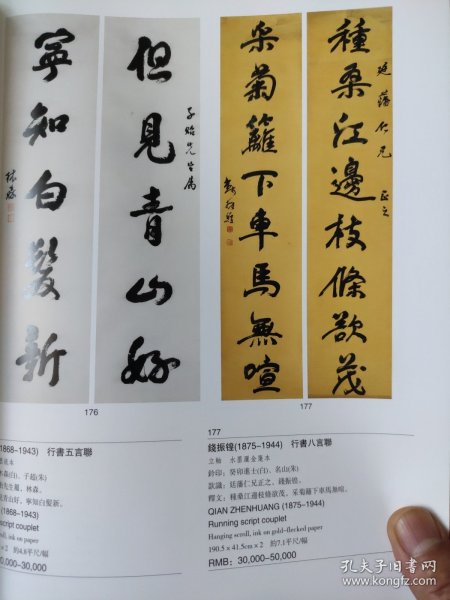 種桑江邊枝條欲茂
延藩仁兄 正之
采菊籬下車馬無喧
但見青山好
子貽先生屬
寧知白髮新
林森
176
177
1868-1943) 行書五言聯
先生屬,林森。
見青山好,寧知白髮新。
(1868-1943)
script couplet
×2 約4.8平尺/幅
30,000-30,000
177
錢振锽(1875-1944) 行書八言聯
立軸 水墨灑金箋本
鈐印:癸卯進士(白)、名山(朱)
款識:廷藩仁兄正之,錢振煌。
釋文:種桑江邊枝條欲茂,采菊籬下車馬無喧。
QIAN ZHENHUANG (1875-1944)
Running script couplet
Hanging scroll, ink on gold-flecked paper
190.5×41.5cm×2 約7.1平尺/幅
RMB: 30,000-50,000
孔夫子旧书网